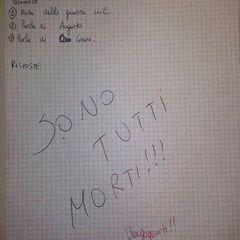 DOMANDE
① Parla delle guerre civili.
② Parla di Augusto
③ Parla di Cesare.
RISPOSTE
SONO
TUTTI
MORTI!!!
Vergognati!!